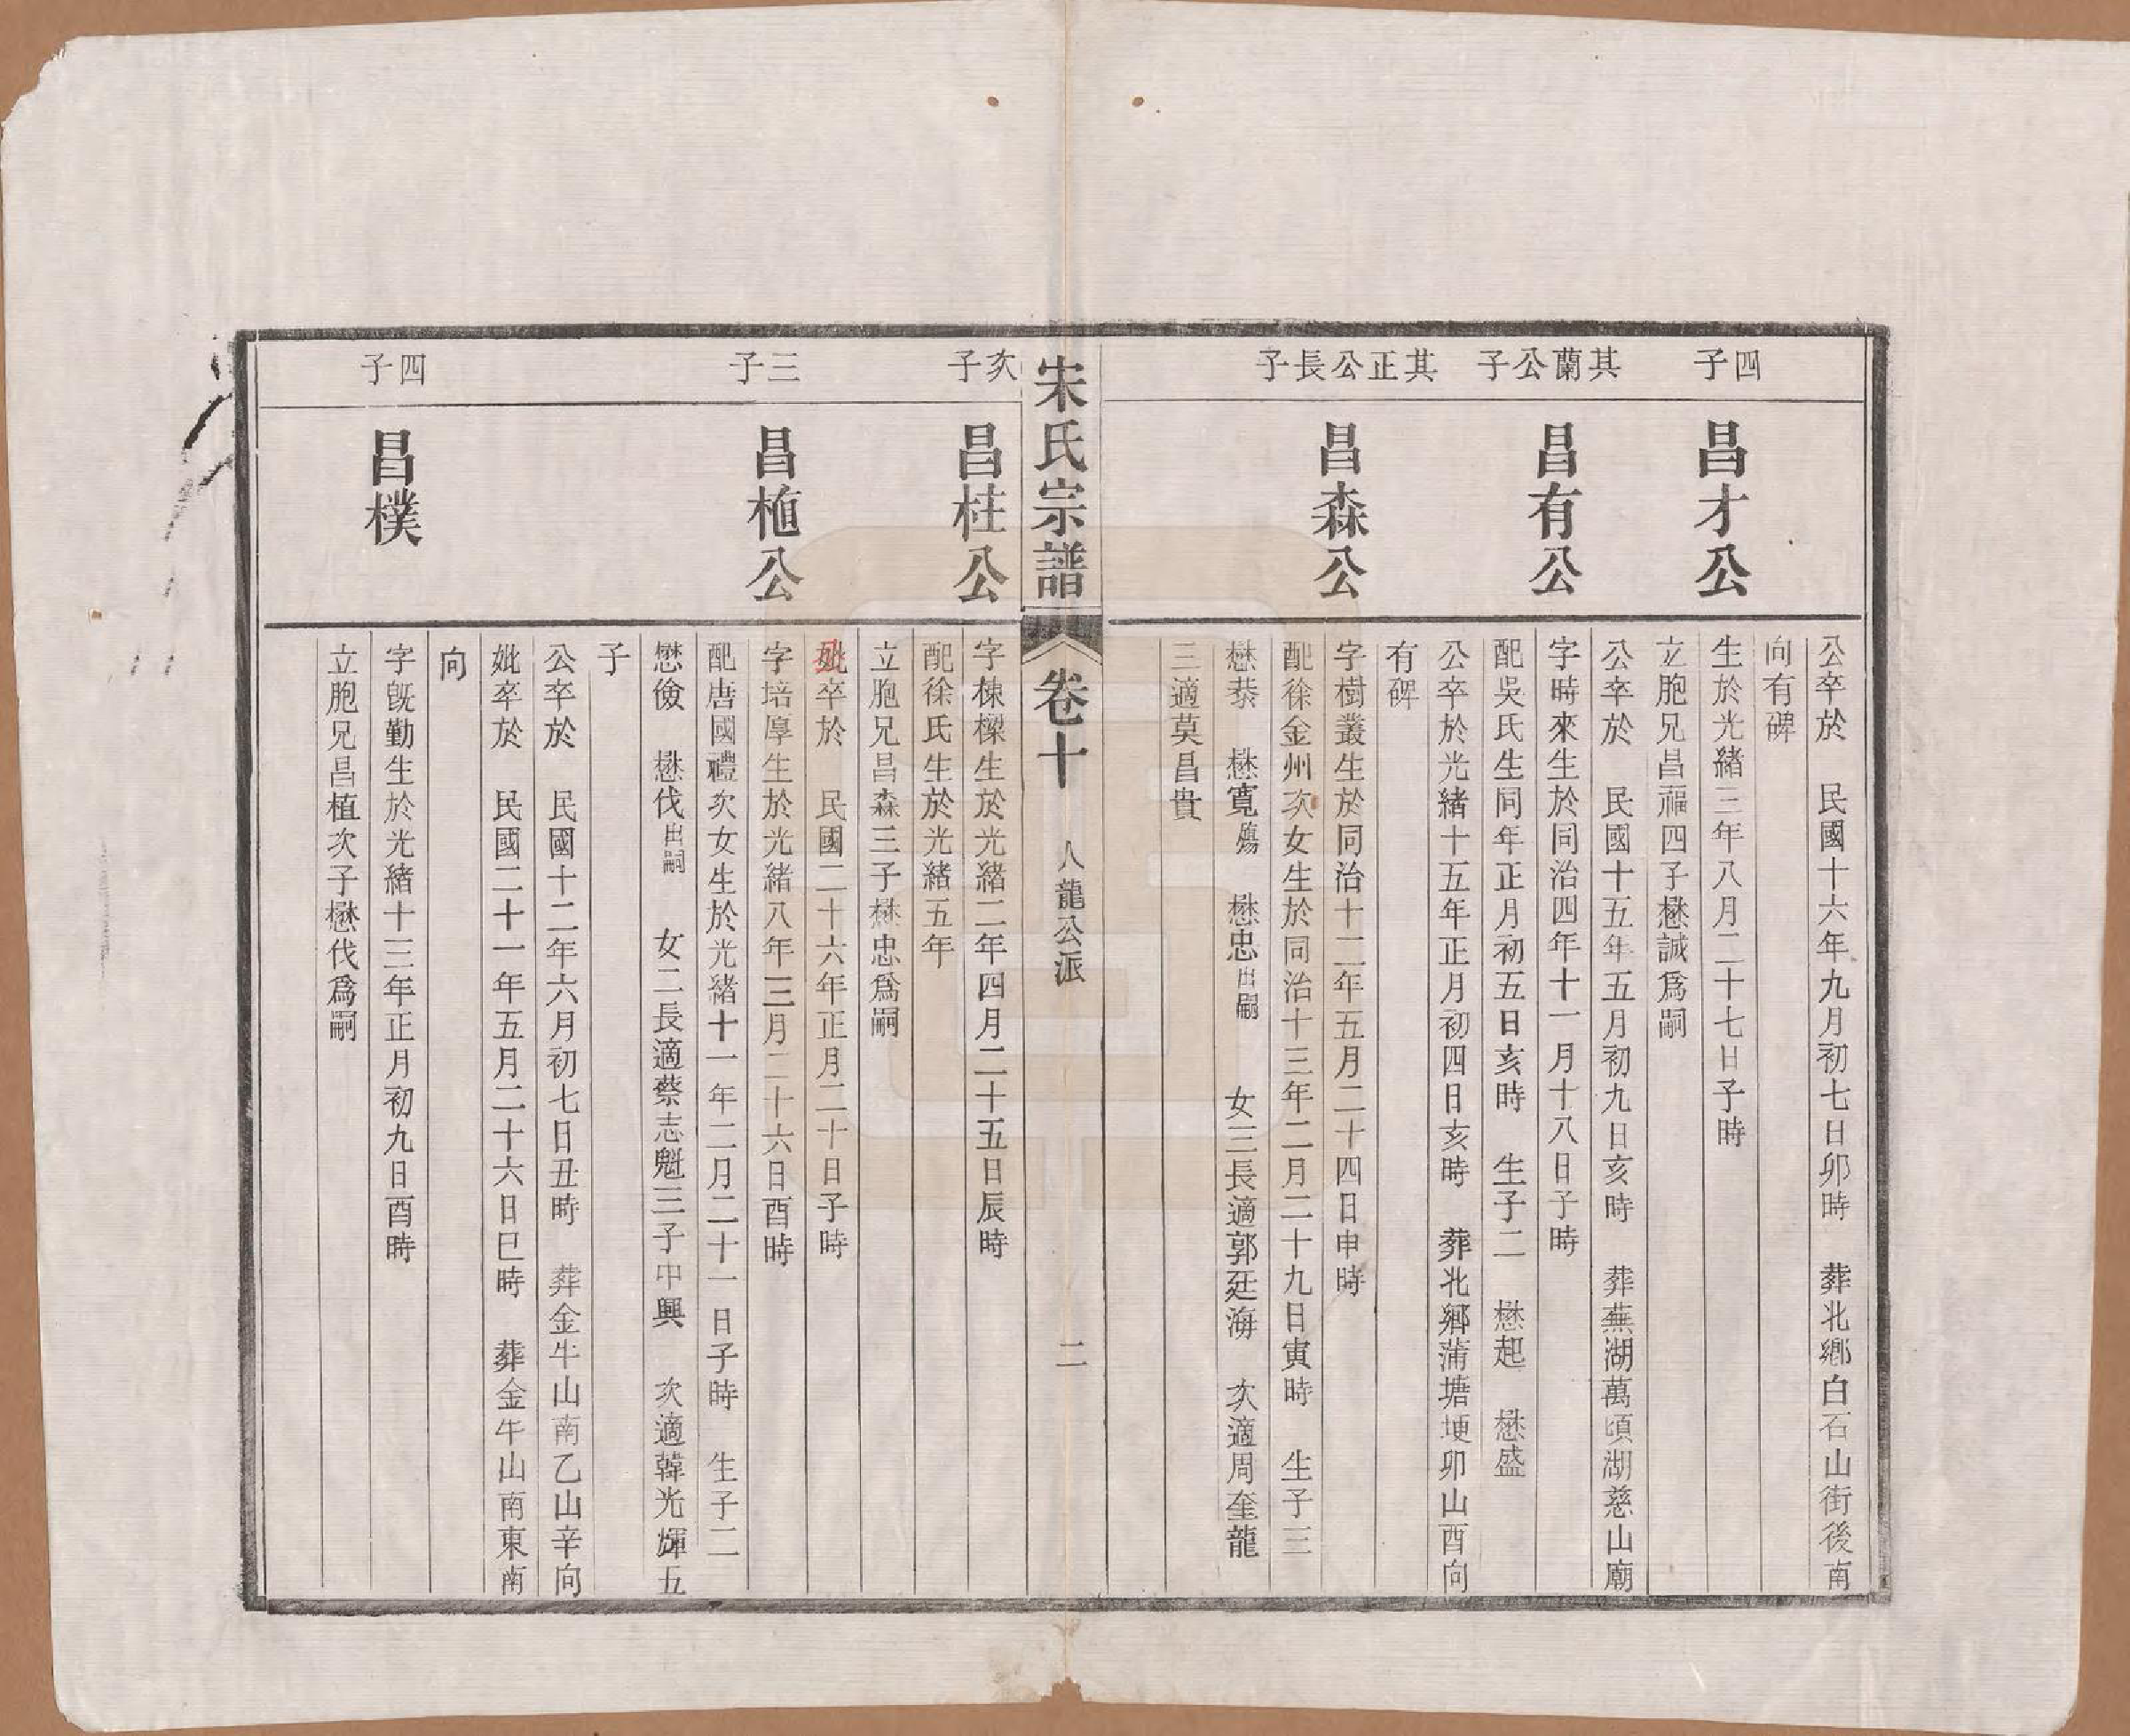 公卒於　民國十六年九月初七日卯時　葬北鄉白石山街後南
向有碑
四子
昌才公
生於光緒三年八月二十七日子時
立胞兄昌福四子懋誠爲嗣
公卒於　民國十五年五月初九日亥時　葬蕪湖萬頃湖慈山廟
其蘭公子
昌有公
字時來生於同治四年十一月十八日子時
配吳氏生同年正月初五日亥時　生子二　懋起　懋盛
公卒於光緒十五年正月初四日亥時　葬北鄉蒲塘埂卯山酉向
有碑
其正公長子
昌森公
字樹叢生於同治十二年五月二十四日申時
配徐金州次女生於同治十三年二月二十九日寅時　生子三
懋恭　懋寬殤　懋忠出嗣　女三長適郭廷海　次適周奎龍
三適莫昌貴
宋氏宗譜
卷十　人龍公派　二
次子
昌柱公
字棟樑生於光緒二年四月二十五日辰時
配徐氏生於光緒五年
立胞兄昌森三子懋忠爲嗣
妣卒於　民國二十六年正月二十日子時
三子
昌植公
字培厚生於光緒八年三月二十六日酉時
配唐國禮次女生於光緒十一年二月二十一日子時　生子二
懋儉　懋伐出嗣　女二長適蔡志魁三子中興　次適韓光輝五
子
公卒於　民國十二年六月初七日丑時　葬金牛山南乙山辛向
妣卒於　民國二十一年五月二十六日巳時　葬金牛山南東南
向
四子
昌樸
字旣勤生於光緒十三年正月初九日酉時
立胞兄昌植次子懋伐爲嗣